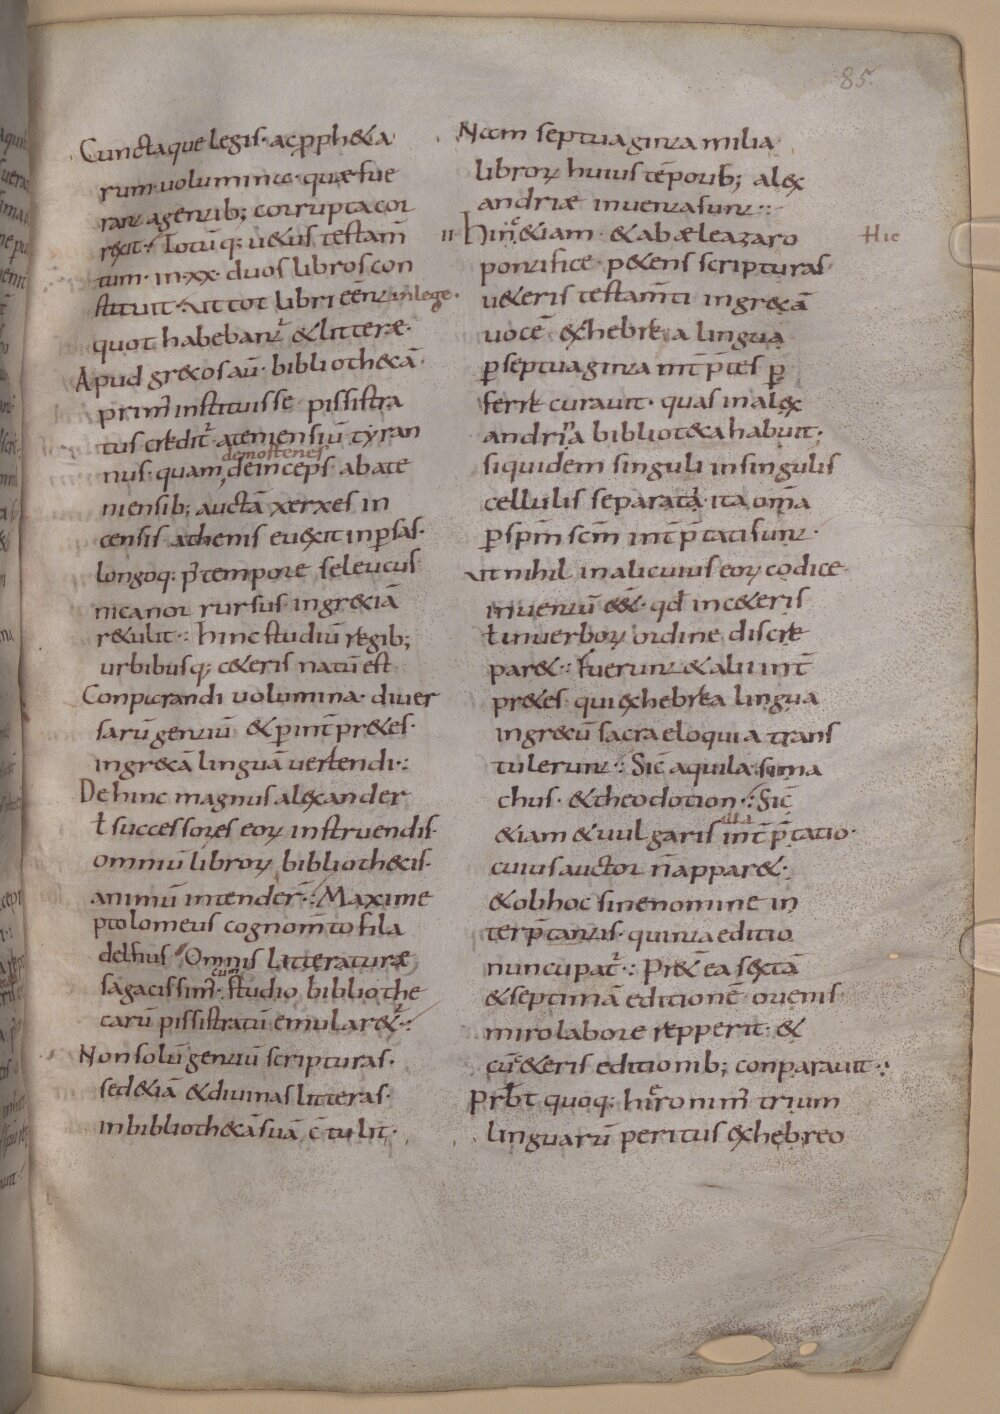 85
Cunctaque legis · ac ꝓph&a
rum uolumina · quæ fue
rant agentib; corrupta cor
rexit · Totūq; u&us testam̄
tum · in · xx · duos libros con
stituit · Ut tot libri eēnt in lege ·
quot habebant̄ & litteræ ·
Apud grecos aū · bibliothecā ·
prim̄ instituisse pissistra
tus credit̄ · ateniensiū tyran
demostenes
nus · quam, deinceps · abate
niensib; auctā xerxes in
censis athenis euexit in ꝑsas ·
longoq: p̄ tempore seleucus
nicanor rursus in greciā
r&ulit ·: hinc studiū regib;
urbibusq; c&eris natū est
Conparandi uolumina · diuer
sarū gentiū & ꝑ int̄pr&es ·
in grecā linguā uertendi ·:
Dehinc magnus alexander
ł successores eoꝝ instruendis ·
omniū libroꝝ bibliothecis ·
animū intender̄ ·: Maxime
ptolomeus cognom̄to fila
delfius Omnis litteraturæ
cum
sagacissim̄ · studio bibliothe
carū pissistratū emular&̄ ·:
Non solū gentiū scripturas ·
sed &iā & diuinas litteras ·
in bibliothecā suā c̄tulit ·
Nam septuaginta milia
libroꝝ huius tēporib; alex
andriæ inuenta sunt ·:
II · Hinc &iam · & ab æleazaro
Hie
pontifice p&ens scripturas
u&eris testam̄ti in grecā
uocē ex hebrea lingua
ꝑ septuaginta int̄p̄tes ꝑ
ferre curauit · quas in alex
andrina bibliotecа habuit ·
siquidem singuli in singulis
cellulis separata ita om̄a
ꝑ sp̄m sc̄m int̄p̄tati sunt ·
Ut nihil in alicuius eoꝝ codice
inuentū eēt · qđ in c&eris
ł in uerboꝝ ordine discre
par& ·: Fuerunt & alii int̄
pr&es · qui ex hebrea lingua
in grecū sacra eloquia trans
tulerunt ·: Sic̄ aquila · sima
chus · & theodotion ·: Sic̄
&iam & uulgaris int̄p̄tatio ·
cuius auctor n̄ appar& ·
& ob hoc sine nomine in
terp̄tantis · quinta editio
nuncupat̄ ·: Pr&̄ ea sextā
& septimā editionē orienis
miro labore repperit · &
cū c&eris editionib; conparauit ·:
Prƀt quoq: hieronim̄ trium
linguarū peritus ex hebreo